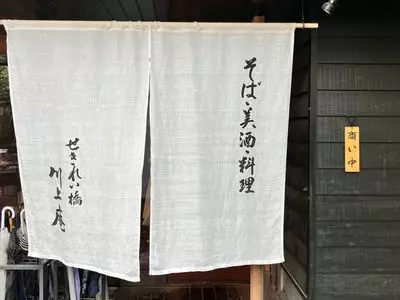 そば・美酒・料理
せきれい橋
川上庵
商い中